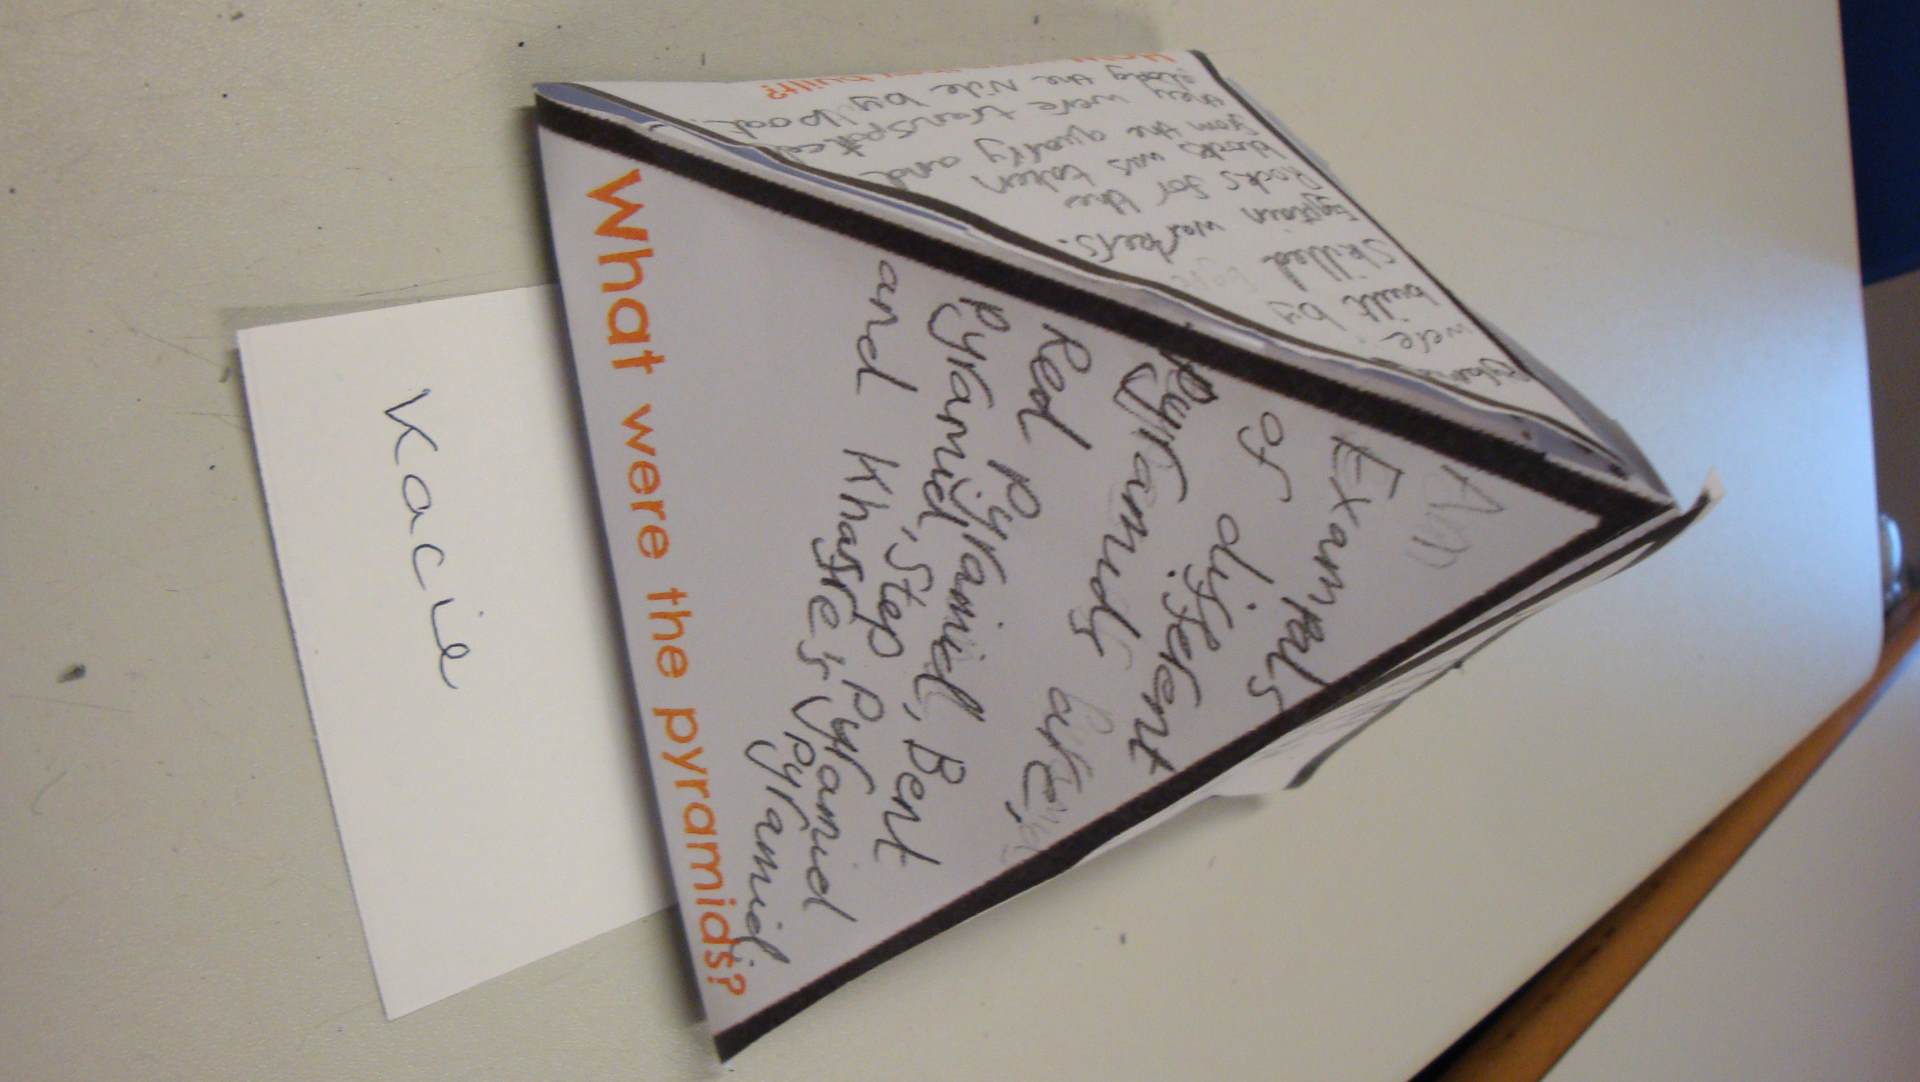 Exampals
of different
Pyramids are,
Red Pyramid, Bent
Pyramid, Step Pyramid
and Khafre's Pyramid.
What were the pyramids?
were
built by
Skilled
Egptain workers.
Rocks for the
blocks was taken
from the quarry and
they were
the Nile by boat.
built?
Kacie